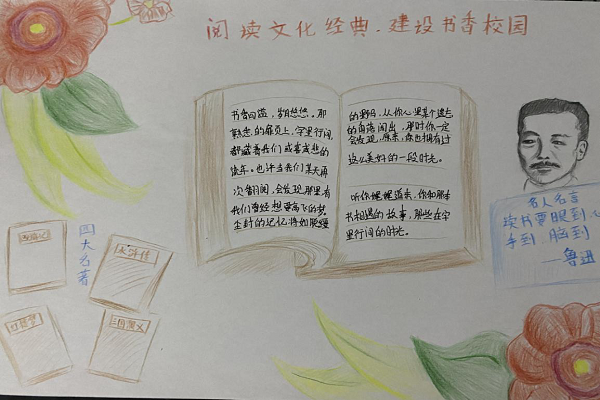 阅读文化经典,建设书香校园
书香四溢,岁月悠悠。那
熟悉的扉页上,字里行间,
都藏着我们或喜或悲的
流年。也许当我们某天再
次翻阅,会发现那里有
我们曾经想要高飞的梦。
尘封的记忆将如脱缰
的野马,从你心里某个遗忘
的角落闯出,那时你一定
会发现,原来,你也拥有过
这么美好的一段时光。
听你娓娓道来,你和那本
书相遇的故事,那些在字
里行间的时光。
名人名言
读书要眼到 心
手到 脑到
——鲁迅
四大名著
西游记
水浒传
红楼梦
三国演义